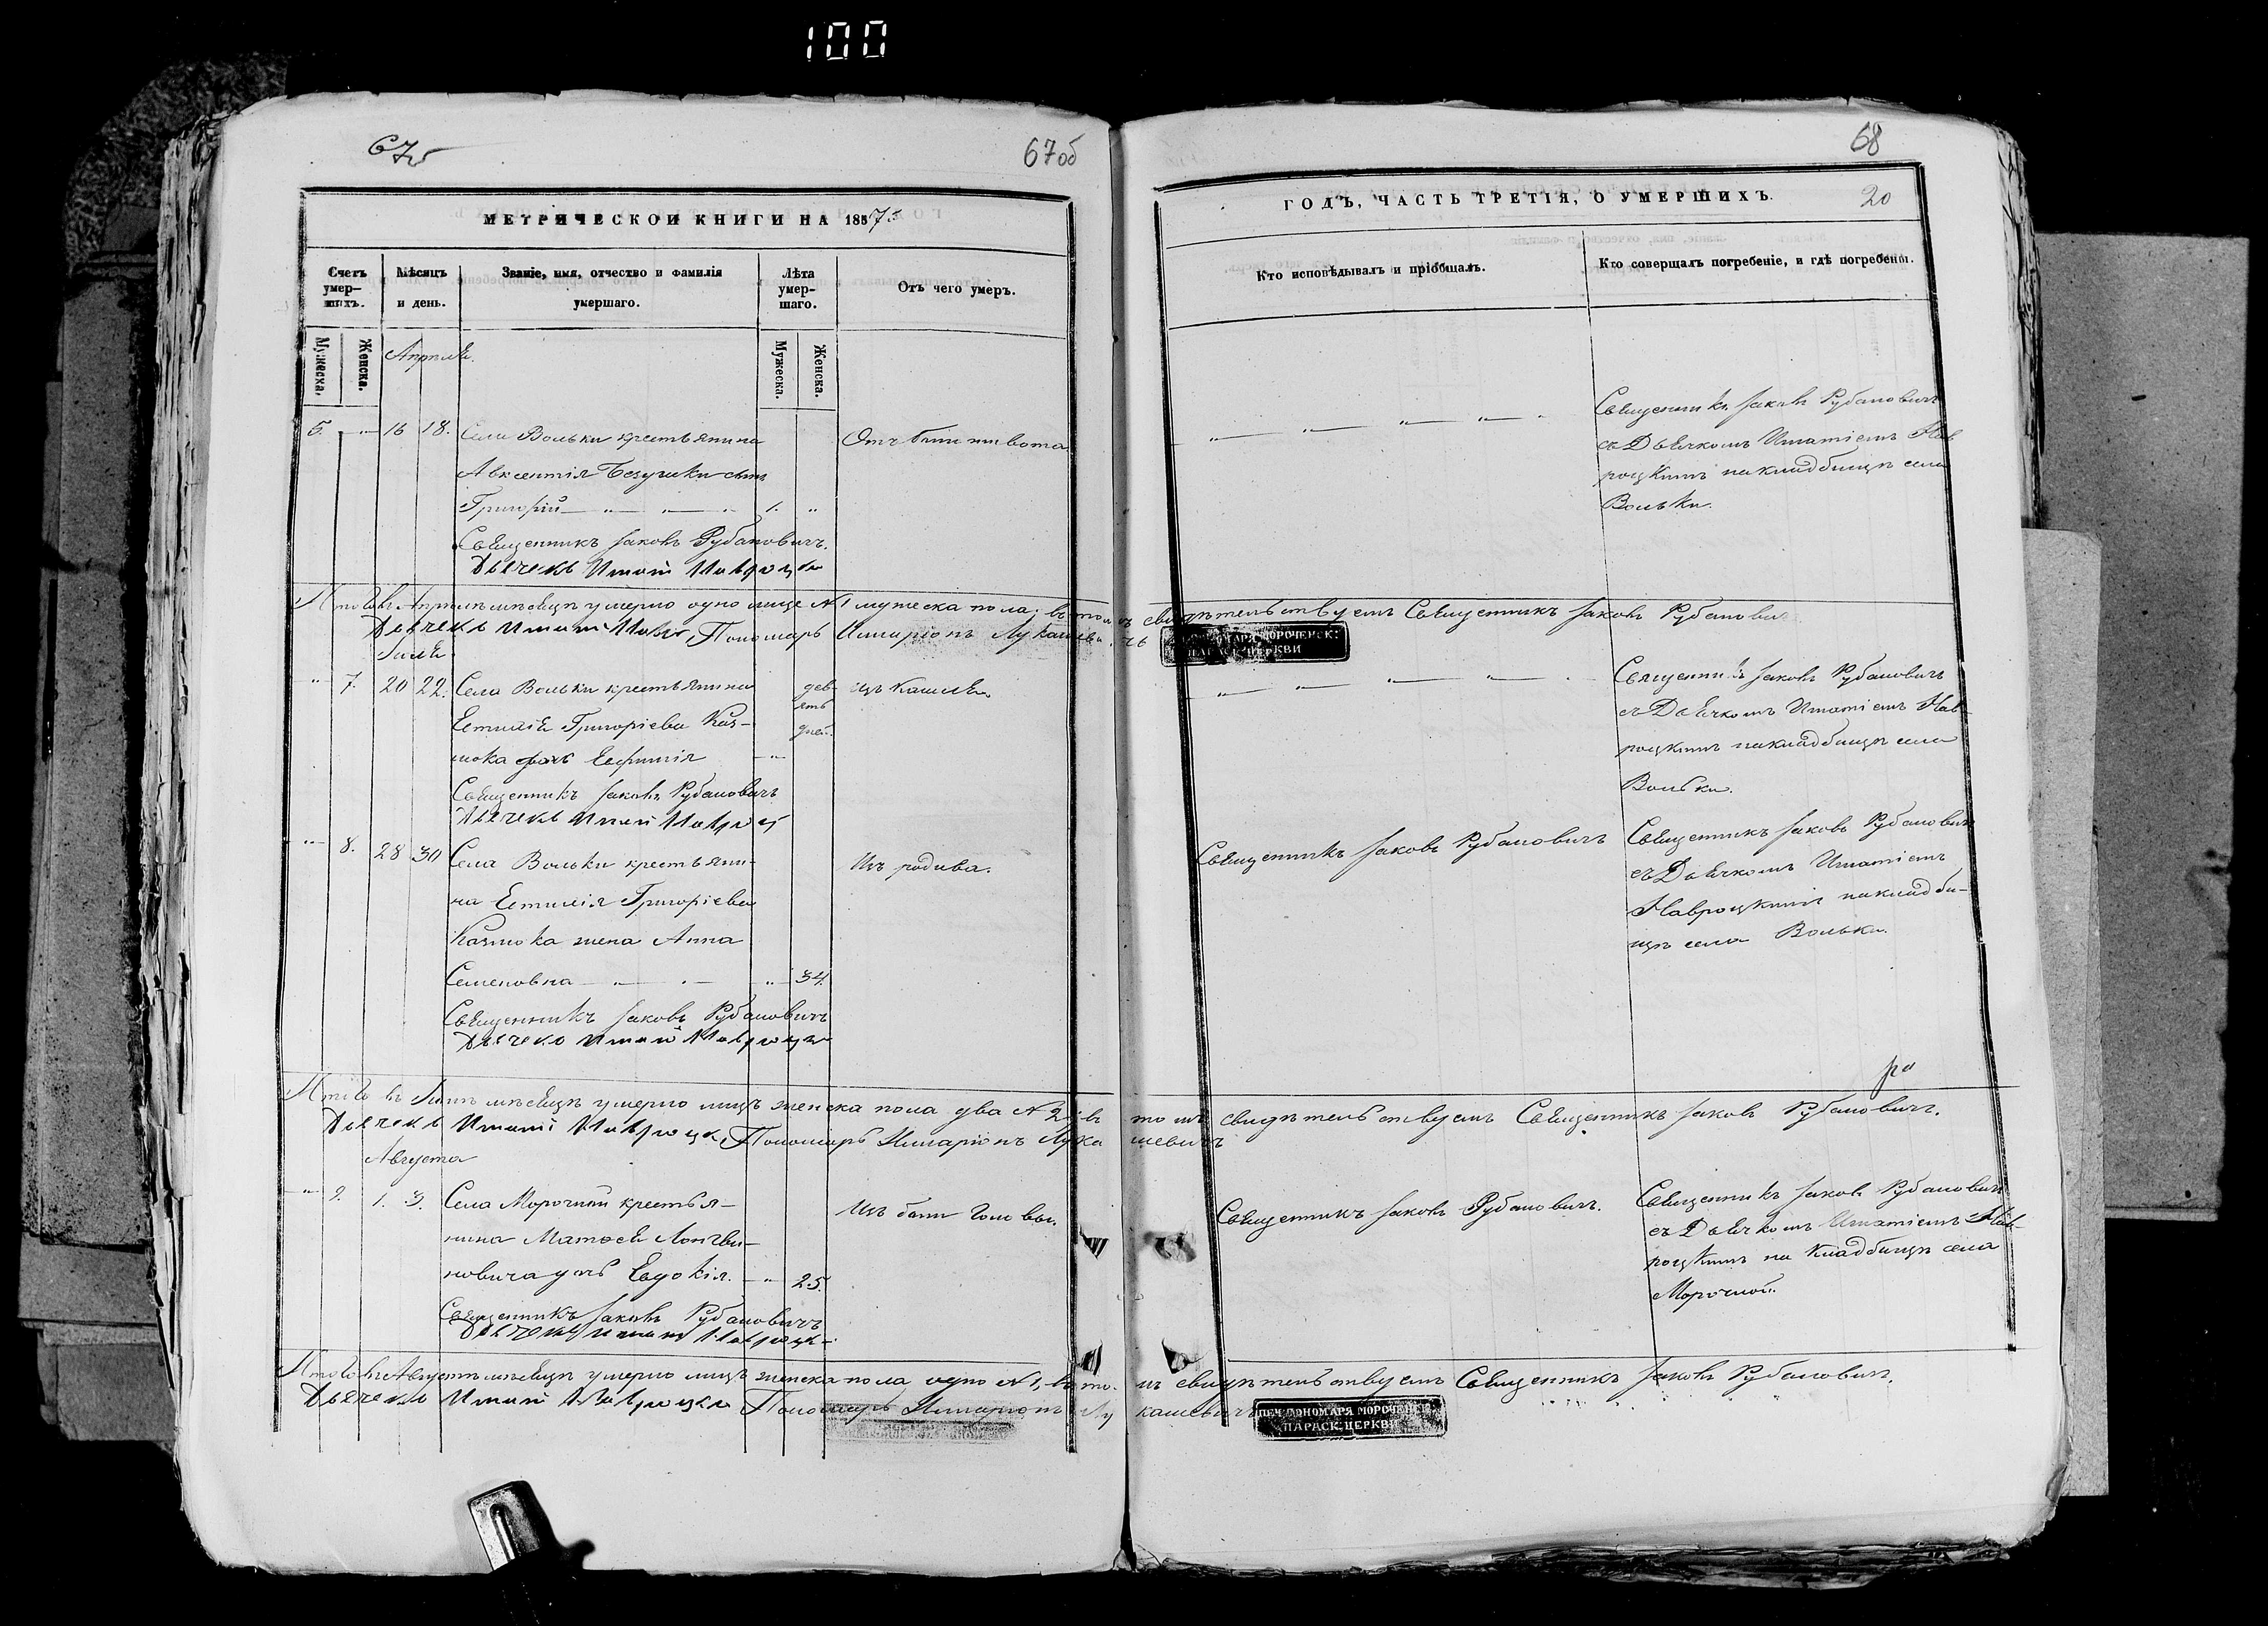 100
67об
67об
МЕТРИЧЕСКОЙ КНИГИ НА 1857
Счетъ умер-шихъ.
Мѣсяцъ и день.
Званіе, имя, отчество и фамилія умершаго.
Лѣта умер-шаго.
Отъ чего умеръ.
Мужеска.
Женска.
Мужеска.
Женска.
Апрѣль
5. 16 18. Села Вольки крестьянина Отъ боли живота
Авксентія сынъ
Григорій 1.
Священникъ Іаковъ Рубановичъ.
Дьячекъ Игнатій Навроцкій
Итого въ Апрѣлѣ мѣсяцѣ умерло одно лице № 1 мужеска пола; въ томъ свидѣтельствуемъ Священникъ Іаковъ Рубановичъ
Дьячекъ Игнатій Понамарь Иларіонъ Лукашевичъ
7. 20 22. Села Вольки крестьянина дев- изъ Кашля.
Григоріева Каз- ять
мока дочь Евфимія дней.
Священникъ Іаковъ Рубановичъ
Дьячекъ Игнатій Навроц
8. 28 30 Села Вольки крестьяни- Изъ родива.
на Григоріева
Казмока жена Анна
Семеновна 34.
Священникъ Іаковъ Рубановичъ
Дьячекъ Игнатій Навроцкій
Итого въ мѣсяцѣ умерло лицъ женска пола два № 2; въ томъ свидѣтельствуемъ Священникъ Іаковъ Рубановичъ.
Дьячекъ Игнатій Навроцкій, Понамарь Иларіонъ Лукашевичъ
Августа
9. 1. 3. Села Морочной крестья- Изъ боли Головы.
нина Матѳея Лонгви-
новича дочь Евдокія. 25.
Священникъ Іаковъ Рубановичъ
Дьячекъ Игнатій Навроцкій
Итого въ Августѣ мѣсяцѣ умерло лицъ женска пола одно № 1, въ томъ свидѣтельствуемъ Священникъ Іаковъ Рубановичъ.
Дьячекъ Игнатій Навроцкій Понамарь Иларіонъ Лукашевичъ
68
20
ГОДЪ, ЧАСТЬ ТРЕТІЯ, О УМЕРШИХЪ.
Кто исповѣдывалъ и пріобщалъ.
Кто совершалъ погребеніе, и гдѣ погребены.
Священникъ Іаковъ Рубановичъ
съ Дьячкомъ Игнатіемъ Нав
роцкимъ на кладбищѣ села
Вольки.
ПОНОМАРЯ МОРОЧЕНСК:
ПАРАСК. ЦЕРКВИ
Священникъ Іаковъ Рубановичъ
съ Дьячкомъ Игнатіемъ Нав-
роцкимъ на кладбищѣ села
Вольки.
Священникъ Іаковъ Рубановичъ
Священникъ Іаковъ Рубановичъ
съ Дьячкомъ Игнатіемъ
Навроцкимъ на кладби-
щѣ села Вольки.
Священникъ Іаковъ Рубановичъ.
Священникъ Іаковъ Рубановичъ
съ Дьячкомъ Игнатіемъ Нав-
роцкимъ на Кладбищѣ села
Морочной.
ПЕЧ. ПОНОМАРЯ МОРОЧЕНСК
ПАРАСК. ЦЕРКВИ